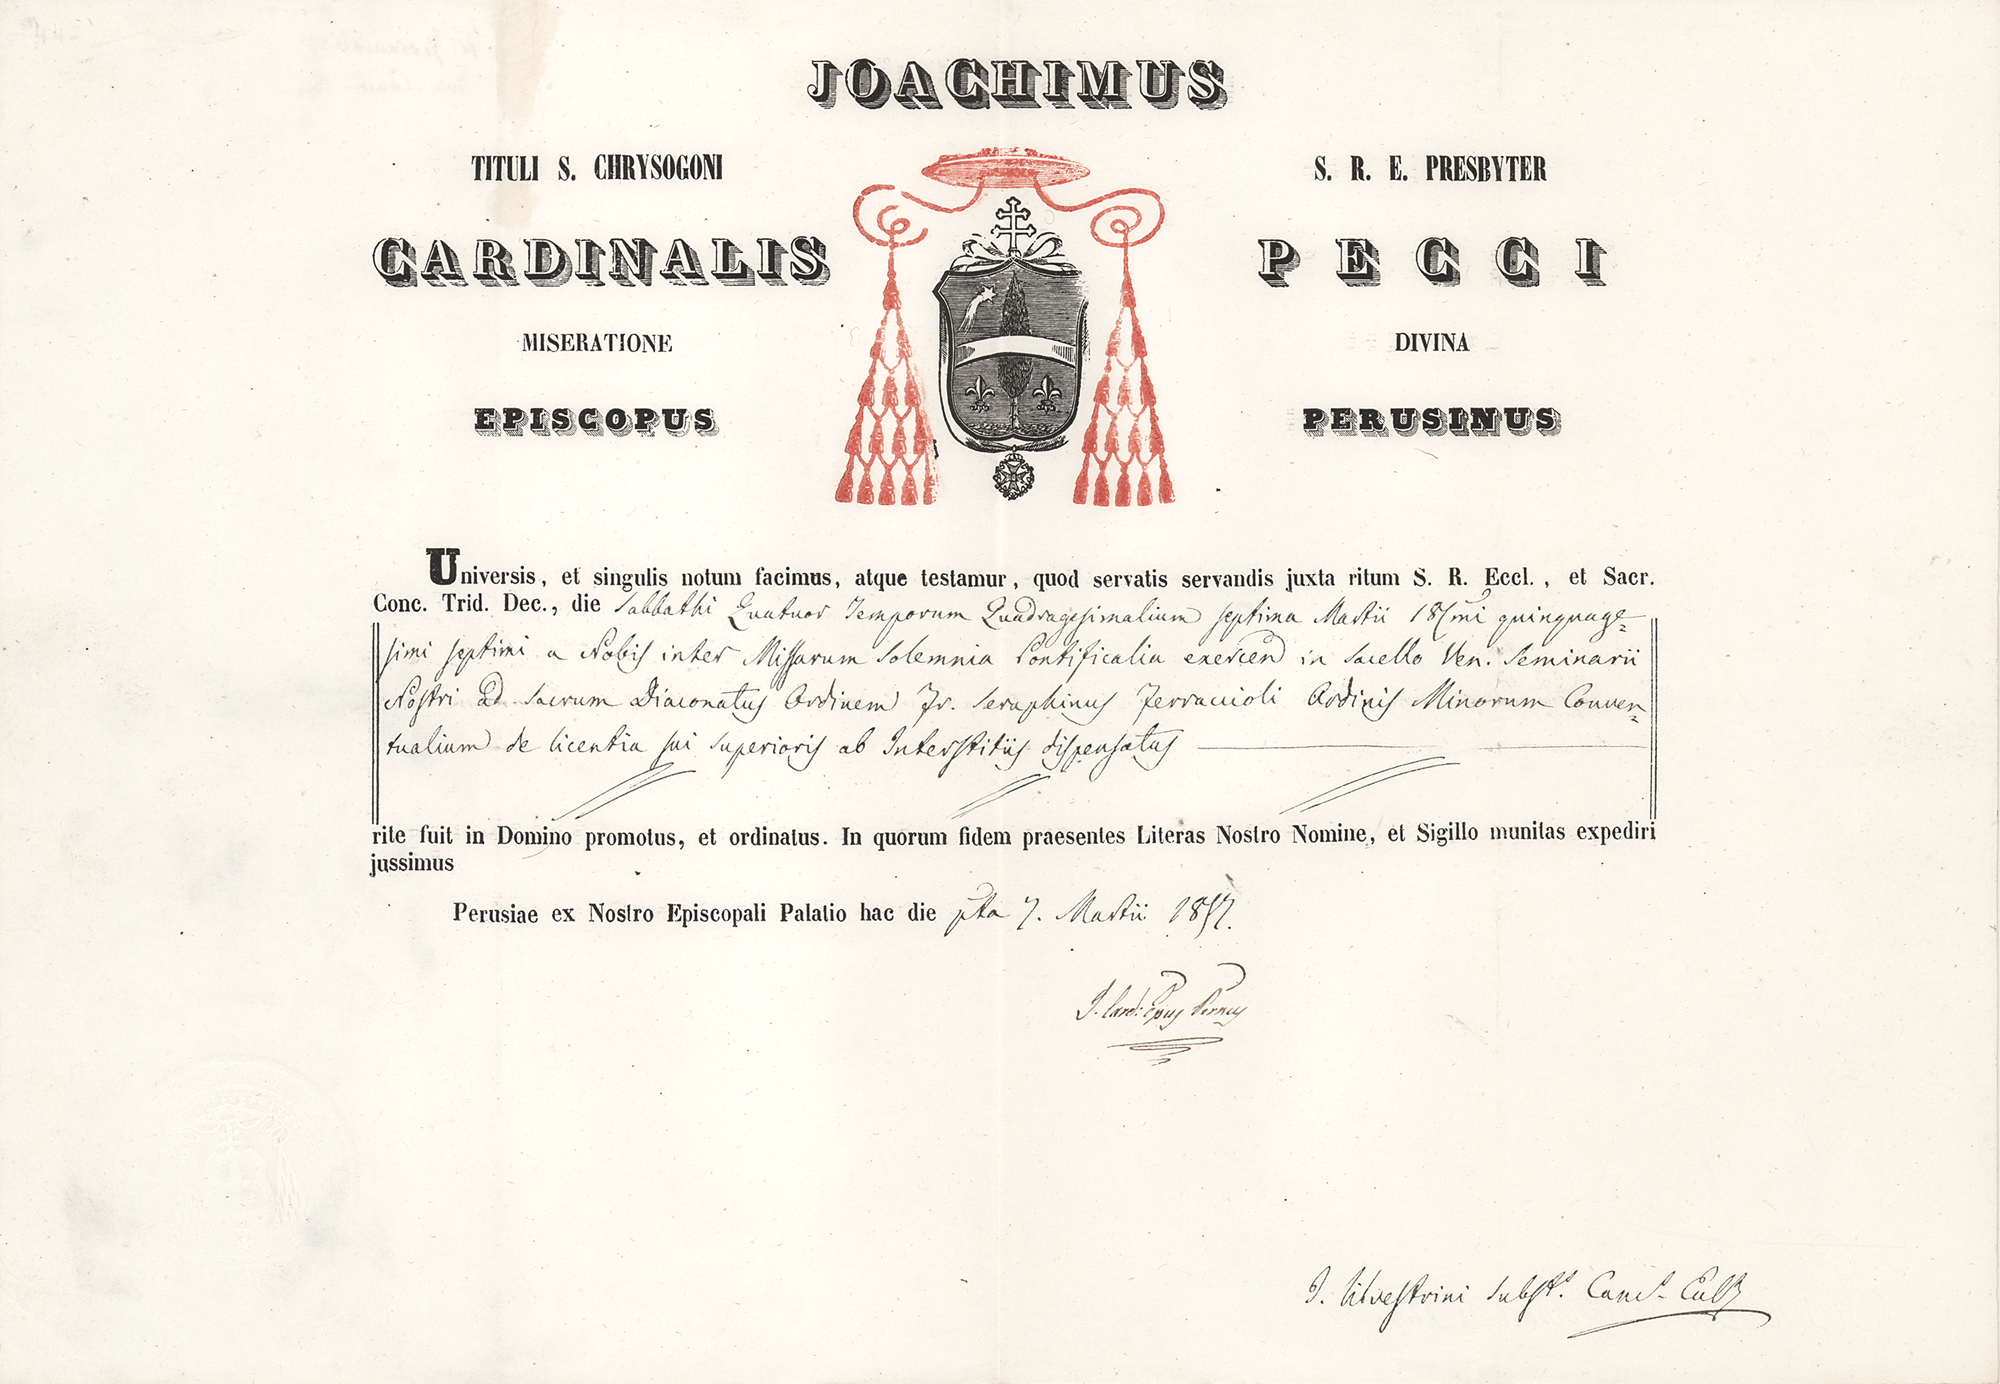 JOACHIMUS
TITULI S. CHRYSOGONI S. R. E. PRESBYTER
CARDINALIS PECCI
MISERATIONE DIVINA
EPISCOPUS PERUSINUS
Universis, et singulis notum facimus, atque testamur, quod servatis servandis juxta ritum S. R. Eccl., et Sacr.
Conc. Trid. Dec., die Sabbathi Quatuor Temporum Quadragesimalium septima Martii 18[mi] quinquage=
simi septimi a Nobis inter Missarum Solemnia Pontificalia exercend in sacello Ven. Seminarii
Nostri ad Sacrum Diaconatus Ordinem Fr. Seraphinus Ferraccioli Ordinis Minorum Conven=
tualium de licentia sui Superioris ab Interstitiis dispensatus
rite fuit in Domino promotus, et ordinatus. In quorum fidem praesentes Literas Nostro Nomine, et Sigillo munitas expediri
jussimus
Perusiae ex Nostro Episcopali Palatio hac die pta 7. Martii 1857.
J. Card: Epus Perus
J. Silvestrini Subst.